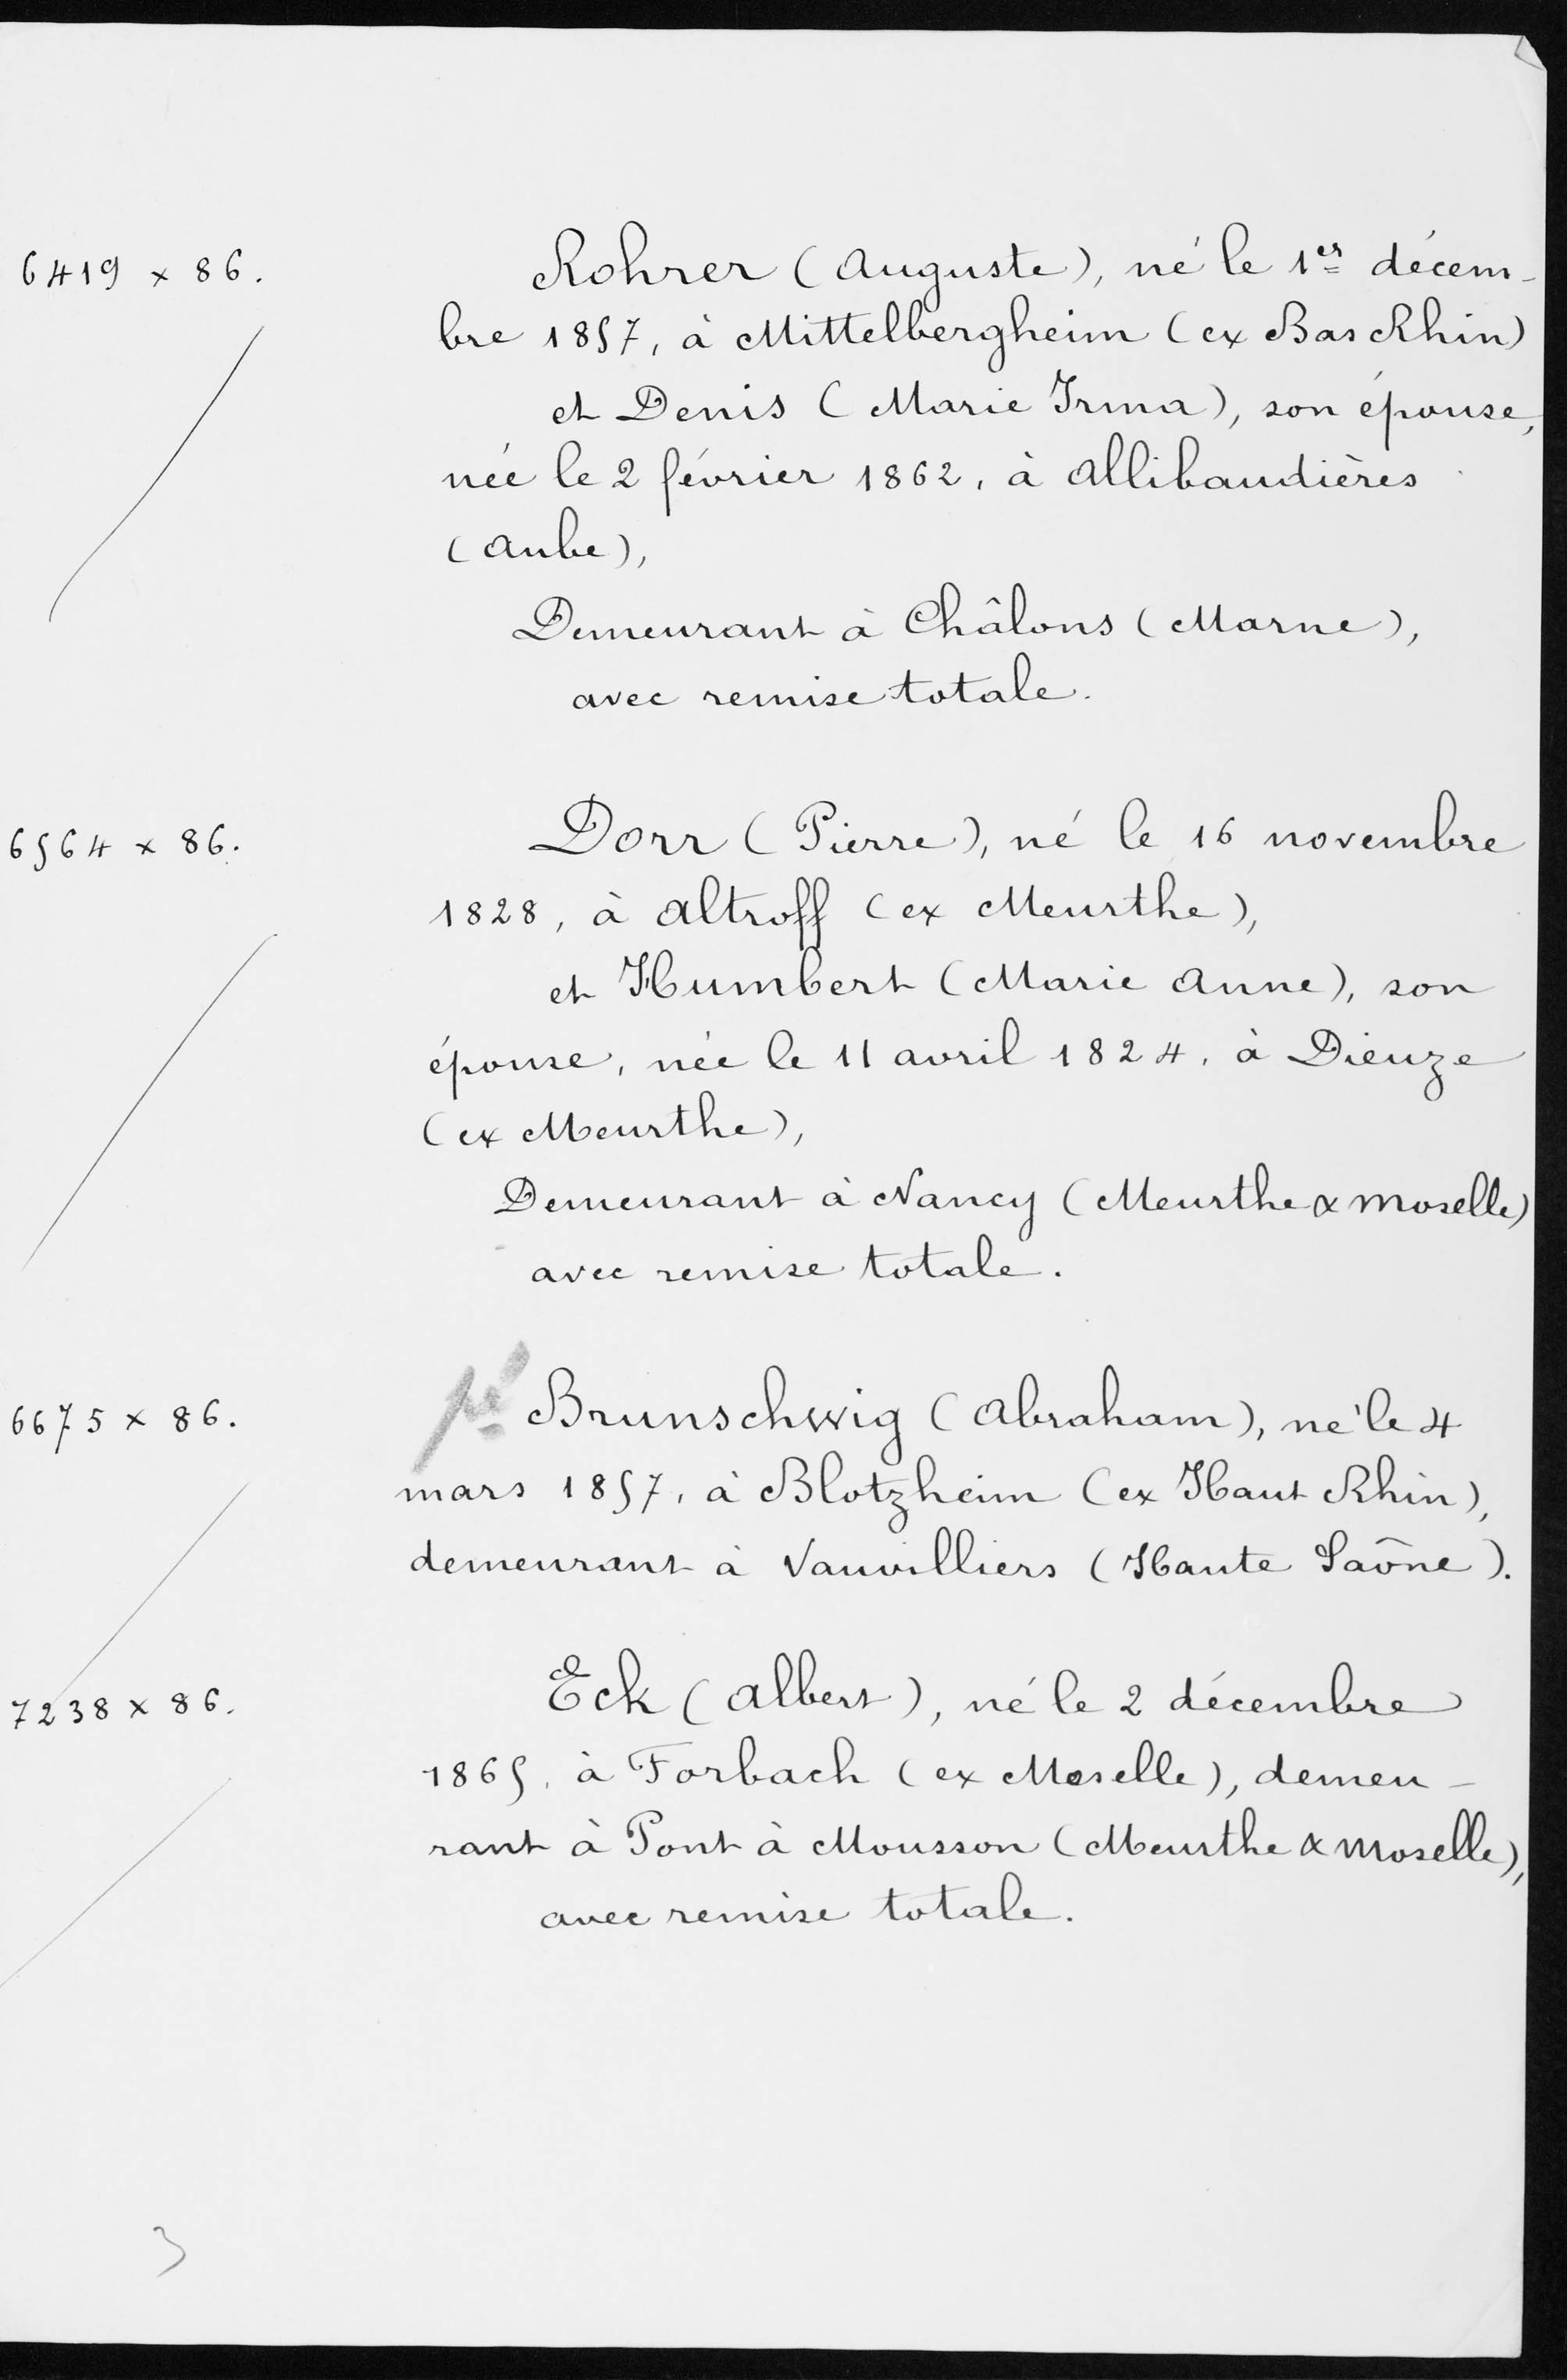 6419 x 86.
Rohrer (Auguste), né le 1er décem-
bre 1857, à Mittelbergheim (ex Bas Rhin)
et Denis (Marie Irma), son épouse,
née le 2 février 1862, à Allibaudières
(Aube),
Demeurant à Châlons (Marne),
avec remise totale.
6564 x 86.
Dorr (Pierre), né le 16 novembre
1828, à Altroff (ex Meurthe),
et Humbert (Marie Anne), son
épouse, née le 11 avril 1824, à Dieuze
(ex Meurthe),
Demeurant à Nancy (Meurthe & Moselle)
avec remise totale.
6675 x 86.
pé Brunschwig (Abraham), né le 4
mars 1857, à Blotzheim (ex Haut Rhin),
demeurant à Vauvilliers (Haute Saône).
7238 x 86.
Eck (Albert), né le 2 décembre
1865, à Forbach (ex Moselle), demeu-
rant à Pont à Mousson (Meurthe & Moselle),
avec remise totale.
3